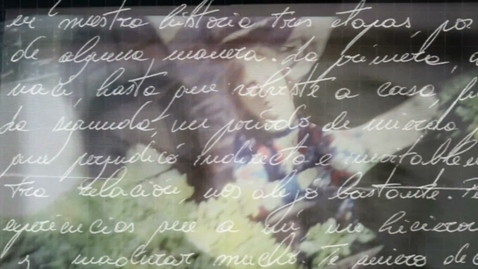 en nuestra historia tres etapas, por
de alguna manera. La primera, d
nací hasta que volviste a casa, fu
da segunda, un período de mierda
que perjudicó indirecta e inevitablem
tra relación, nos alejó bastante. T
eriencias que a mí me hiciero
y madurar mucho. Te quiero dec